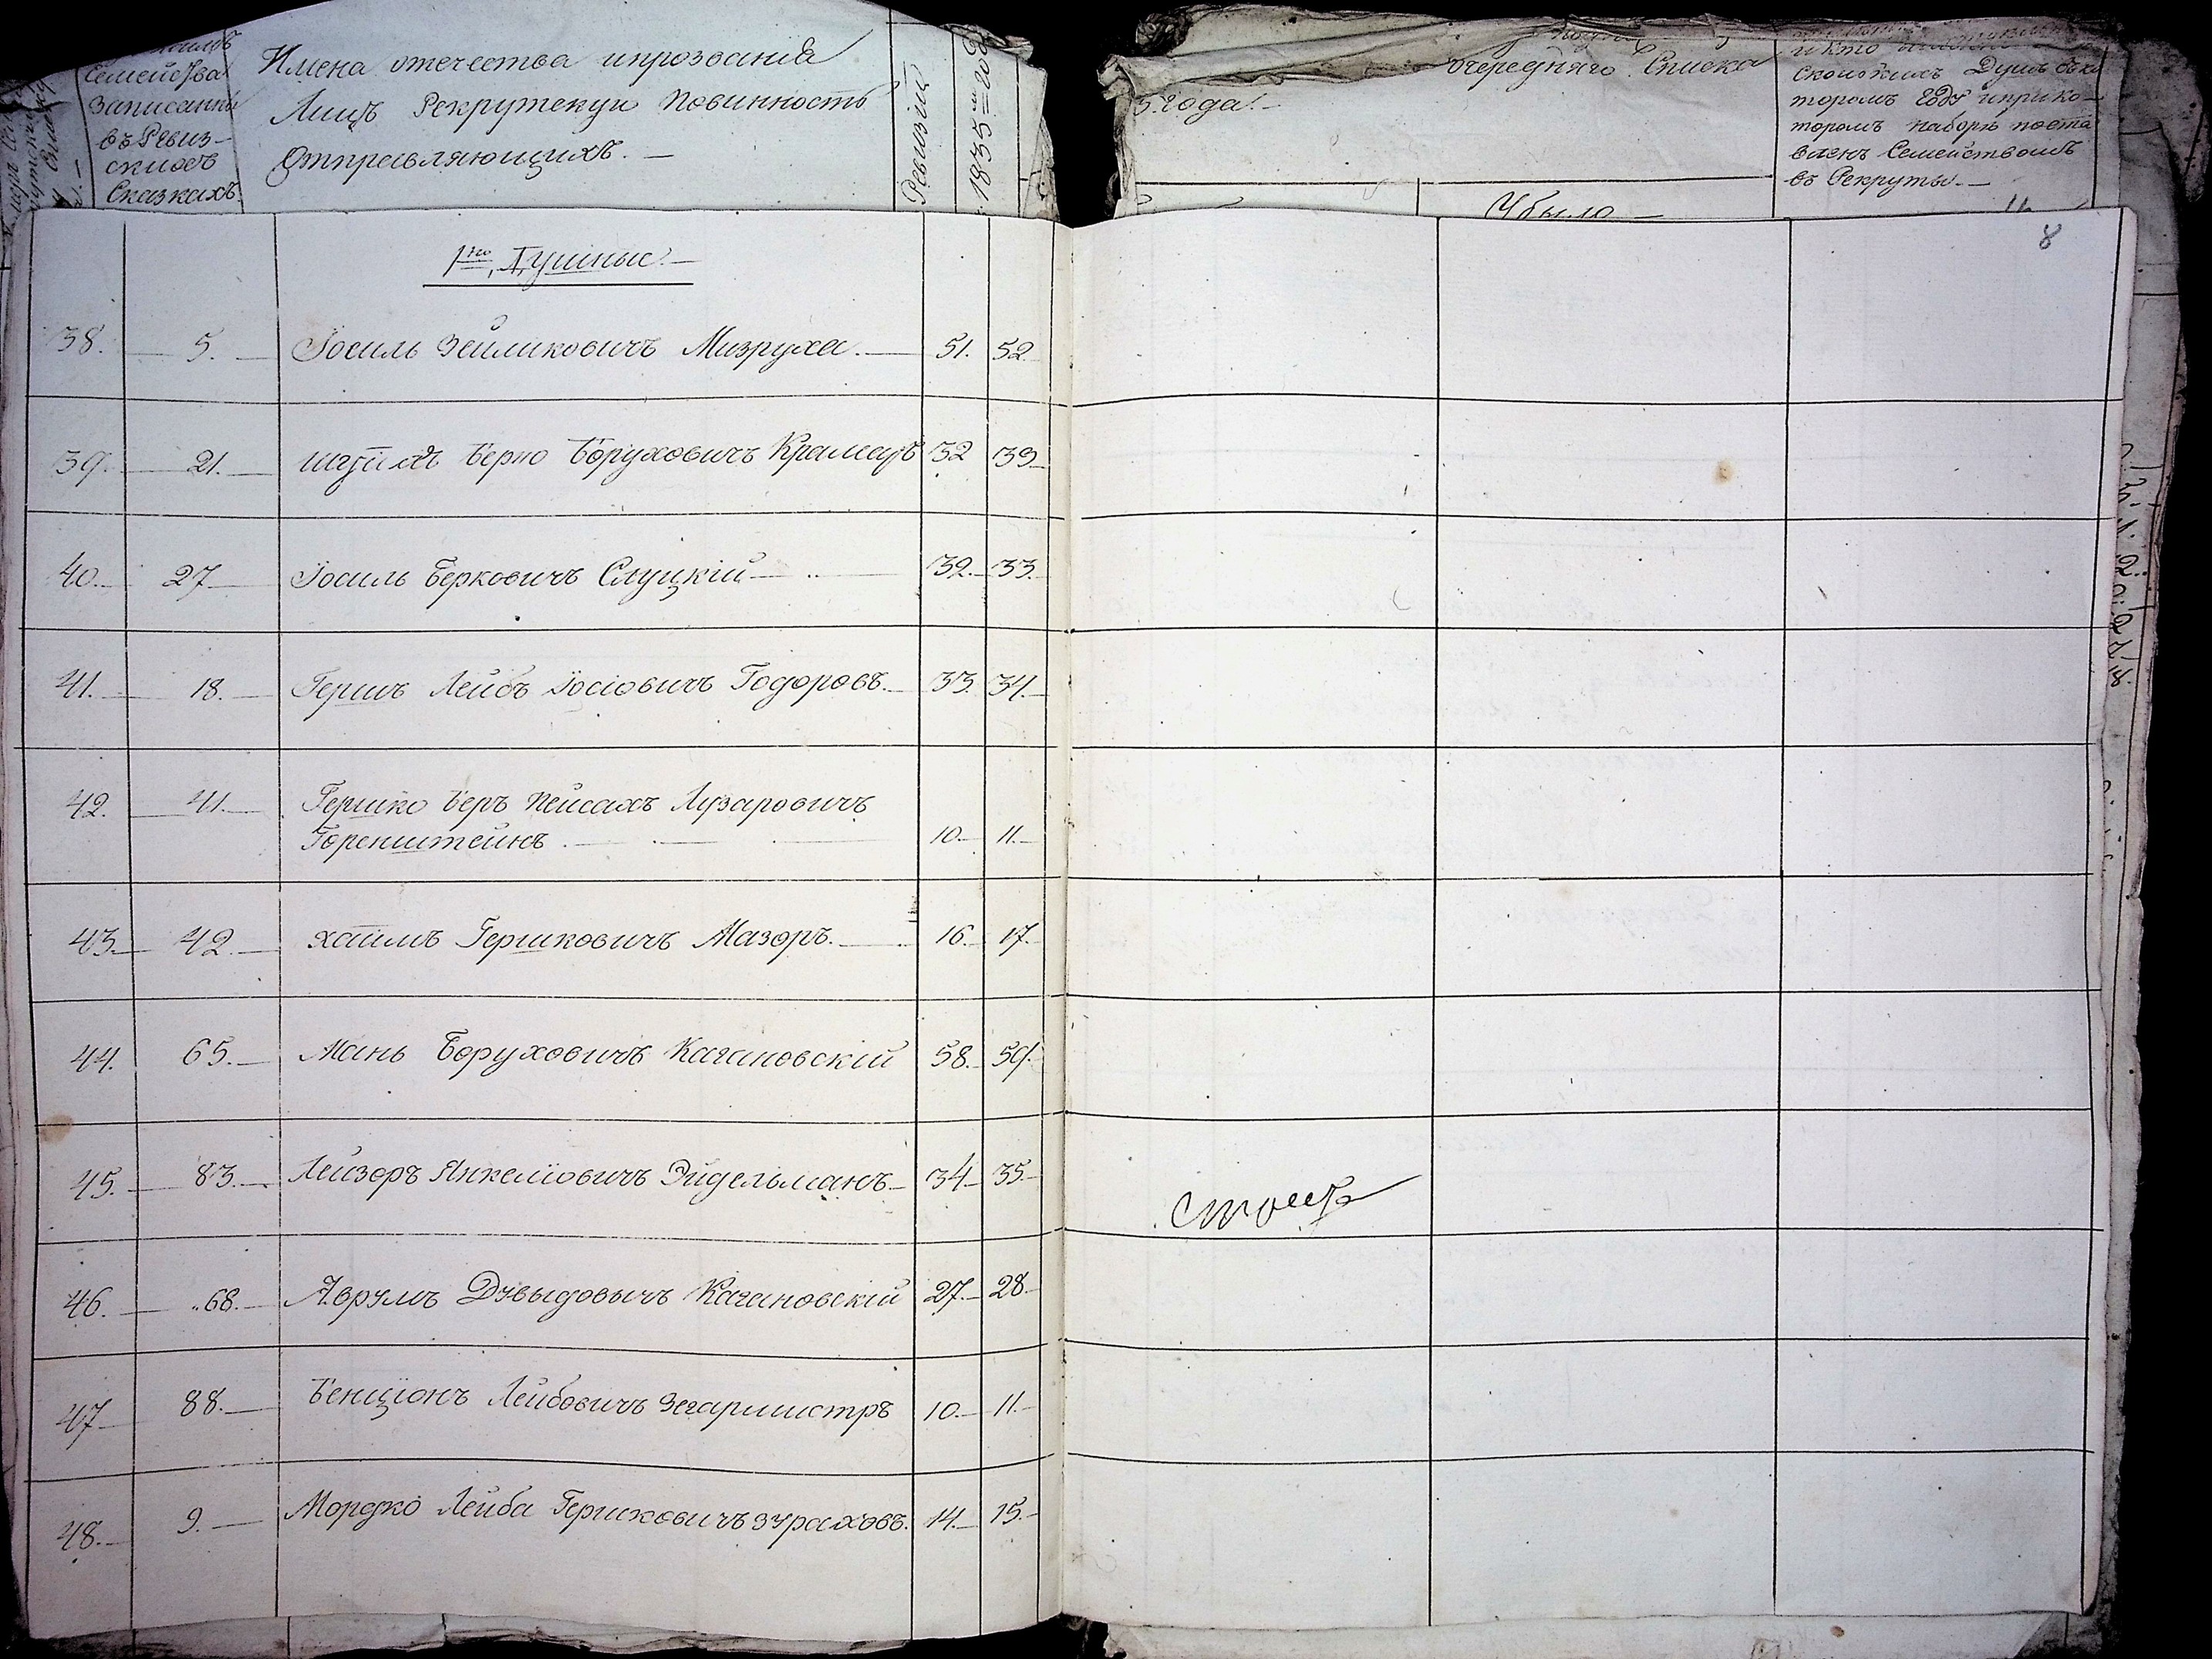 Семейства
Записанны
въ Ревиз-
скихъ
Сказкахъ.
Имена отечества ипрозвания
Лицъ Рекрутскую Повинность
Отправляющихъ. —
Ревизіи
1835 = году
очереднаго Списка
5. года. —
Убыло —
и кто
сколькихъ Душъ въ ко
торомъ году иприко-
торомъ наборѣ поста
вленъ Семействомъ
въ Рекруты. —
8
1но, Душные. —
38. — 5. — Іосиль Зейликовичъ Мизруха. — 51. 52.
39. — 21. — Берко Боруховичъ Крамаръ 32 33
40. — 27 — Іосиль Берковичъ Слуцкій — 32. — 33.
41. — 18. — Гершъ Лейбъ Іосіовичъ Тодоровъ. — 33. 34. —
42. — 41. — Гершко Беръ Пейсахъ Лузаровичъ
Горенштейнъ. — 10. — 11. —
43. — 42. — Хаимъ Гершковичъ Мазоръ. — 16. — 17. —
44. 65. — Мань Боруховичъ Кагановскій 58. — 59. —
45. — 83. — Лейзоръ Янкеліовичъ Эйдельманъ — 34 — 35. —
46. — 68. — Аврумъ Дувыдовычъ Кагановскій 27. — 28. —
47 — 88. — Бенціонъ Лейбовичъ Зегармистръ 10. — 11. —
48. — 9. — Мордко Лейба Гершковичъ Зураховъ. 14. — 15. —